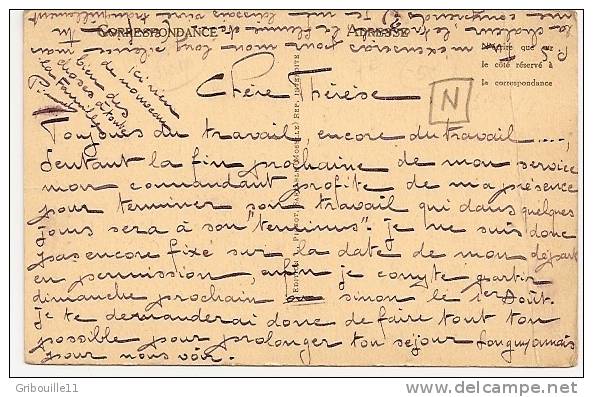 CORRESPONDANCE
ADRESSE
N'écrire que sur
le côté réservé à
la correspondance
N
Chère Thérèse
Toujours du travail, encore du travail ....,
sentant la fin prochaine de mon service
mon commandant profite de ma présence
pour terminer son travail qui dans quelques
jours sera à son "terminus". je ne suis donc
pas encore fixé sur la date de mon départ
en permission, enfin je compte partir
dimanche prochain ou sinon le 1er Août.
je te demanderai donc de faire tout ton
possible pour prolonger ton séjour
pour nous voir.
Ici rien
de nouveau
bien des
choses à toute
la famille
P.S. m'excuseras pour mon long silence mais
la chaleur, le travail
Gribouille11
delcampe.net